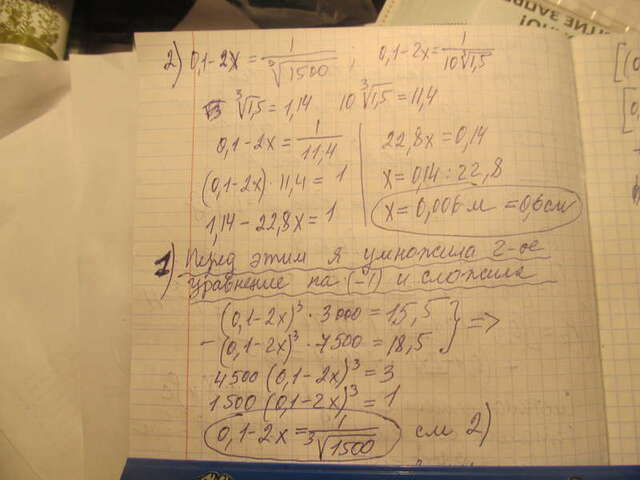 2) 0,1-2x = 1/∛1500 ; 0,1-2x = 1/10∛1,5
∛1,5 = 1,14 10∛1,5 = 11,4
0,1-2x = 1/11,4
(0,1-2x)·11,4 = 1
1,14 - 22,8x = 1
22,8x = 0,14
x = 0,14 : 22,8
x = 0,006 м = 0,6 см
1) Перед этим я умножила 2-ое
уравнение на (-1) и сложила
(0,1-2x)³ · 3000 = 15,5 } =>
- (0,1-2x)³ · 7500 = 18,5
4500 (0,1-2x)³ = 3
1500 (0,1-2x)³ = 1
0,1-2x = 1/∛1500 см 2)